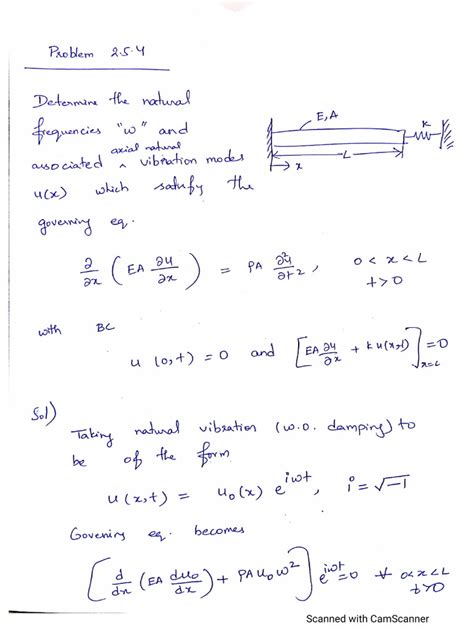 Problem 2.5.4
Determine the natural
frequencies "w" and
axial natural
associated ^ vibration modes
u(x) which satisfy the
governing eq.
E, A
K
L
x
∂/∂x (EA ∂u/∂x) = ρA ∂²u/∂t², 0 < x < L
t > 0
with BC
u (0,t) = 0 and [EA ∂u/∂x + k u(x,t)]x=L = 0
Sol)
Taking natural vibration (w.o. damping) to
be of the form
u(x,t) = u₀(x) e^iωt, i = √-1
Governing eq. becomes
[d/dx (EA du₀/dx) + ρA u₀ω²] e^iωt = 0 ∀ 0<x<L
t>0
Scanned with CamScanner